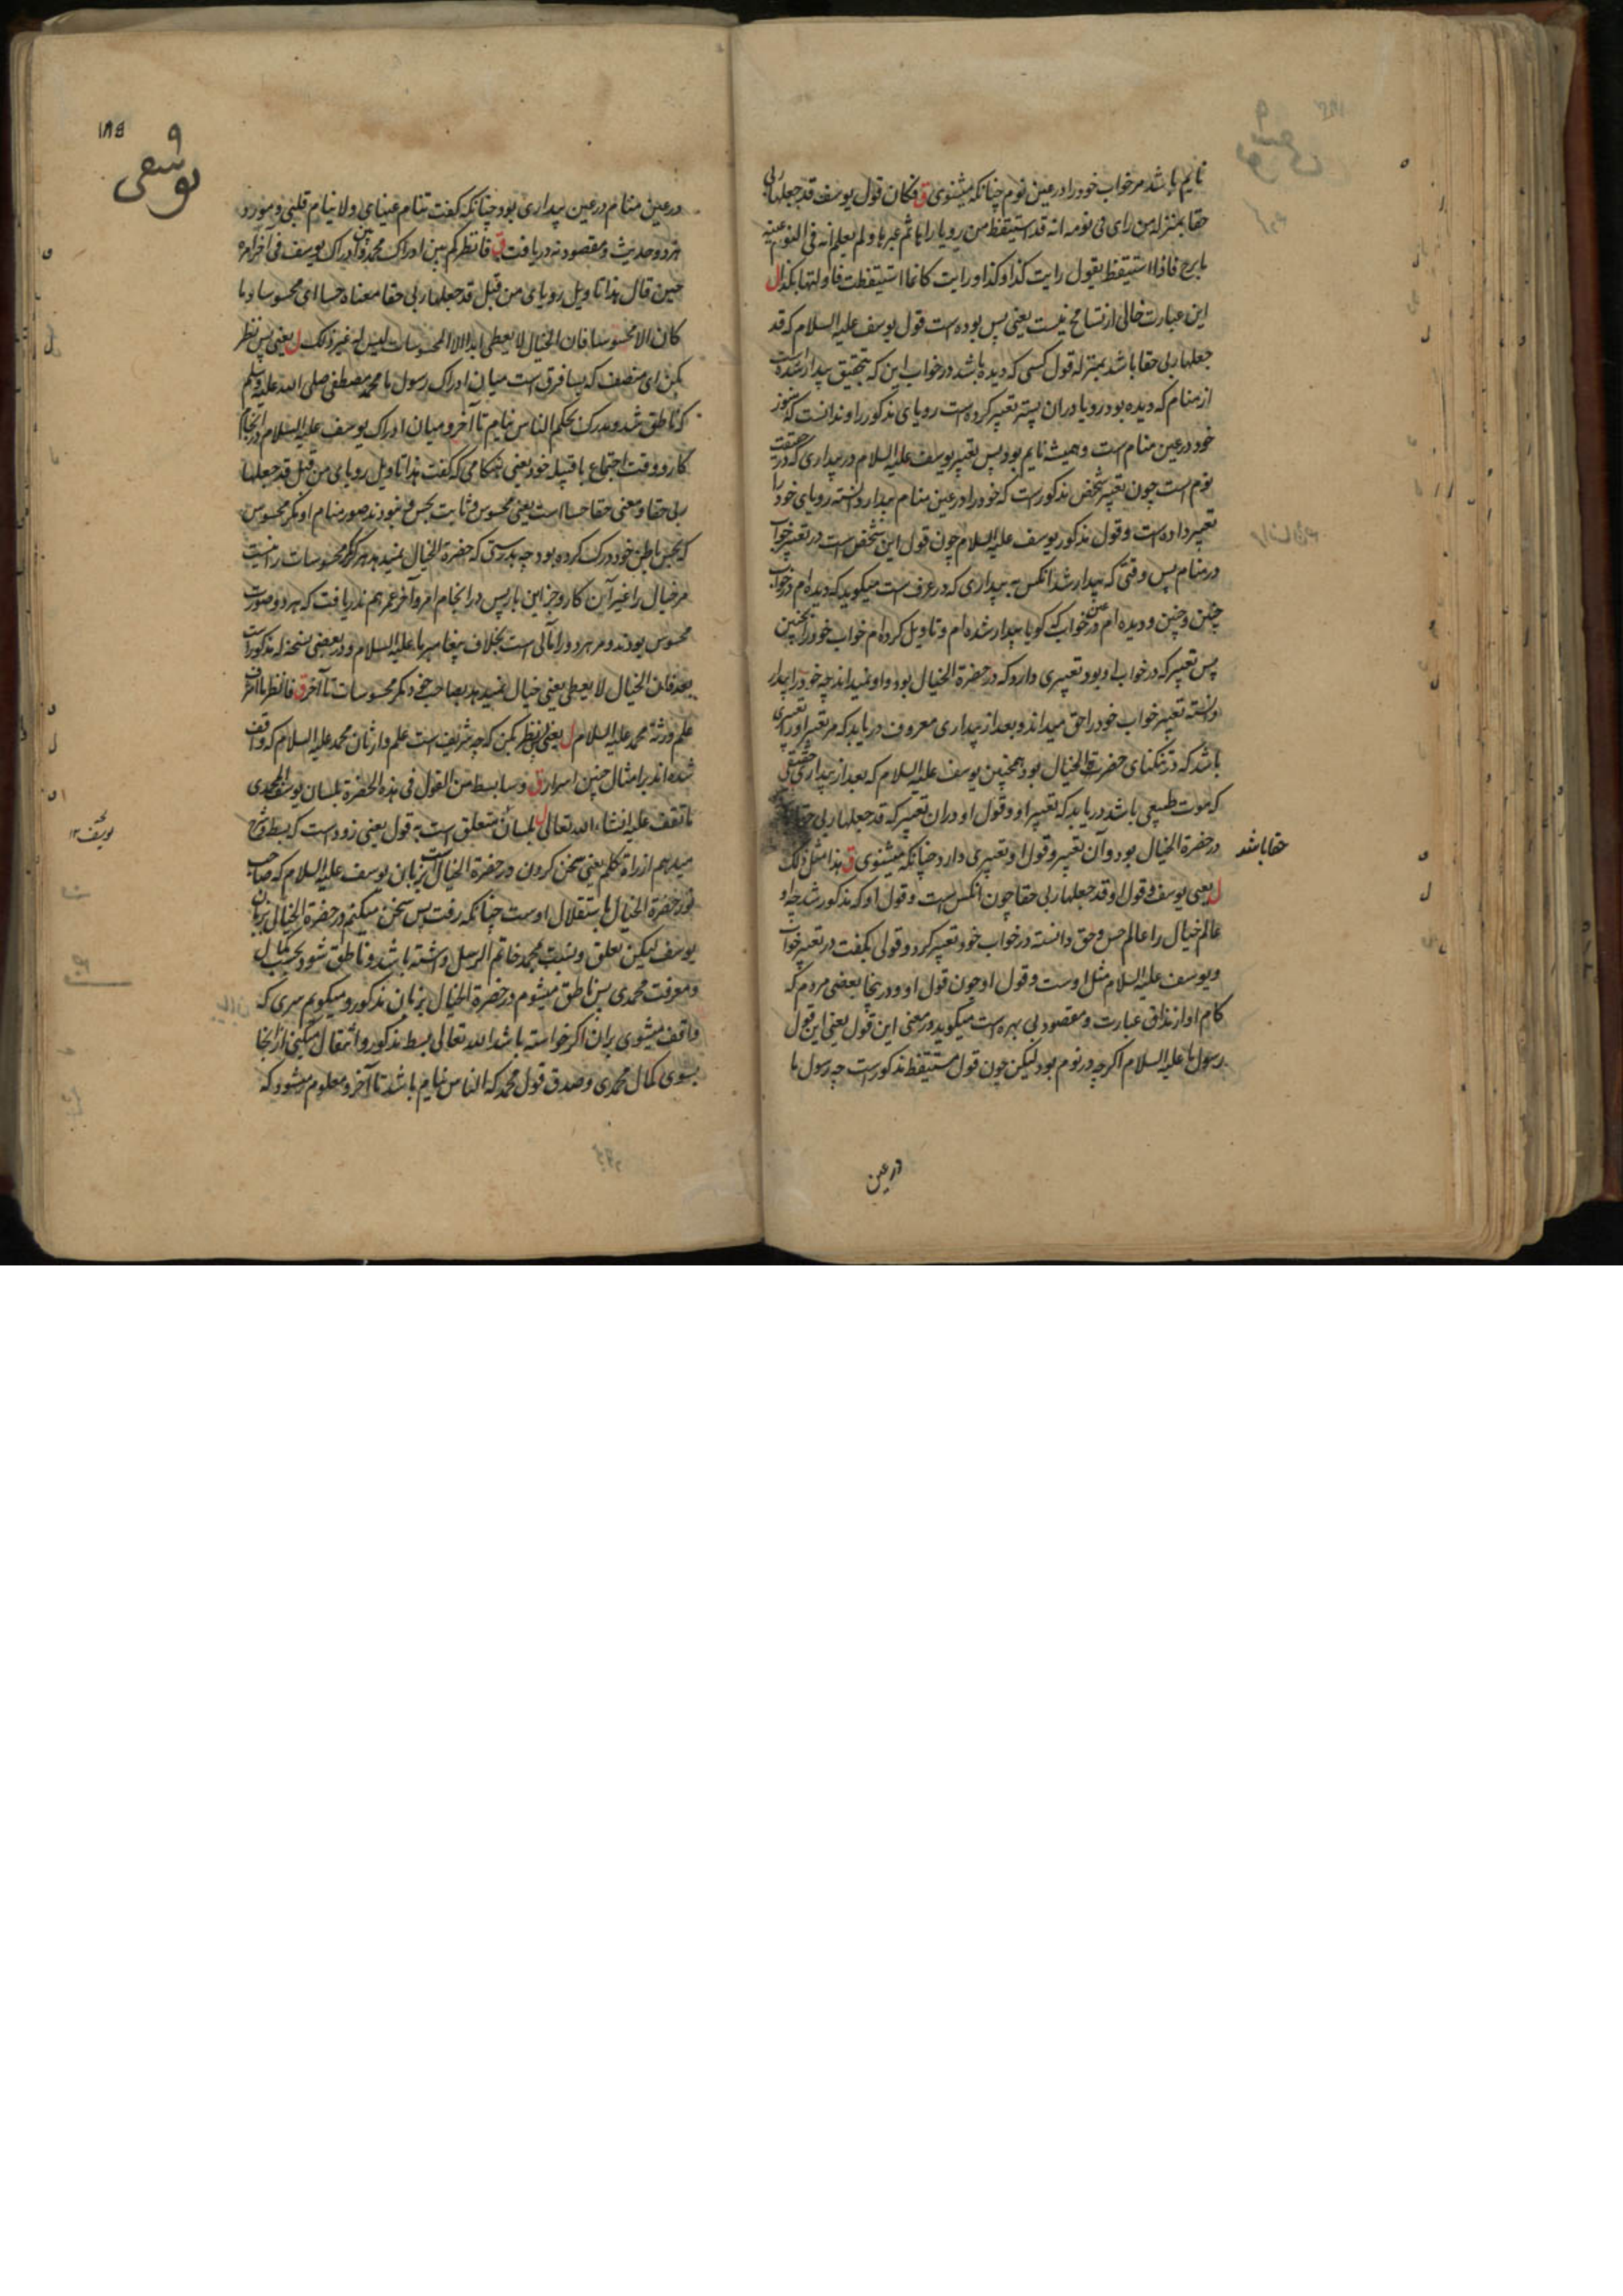 نایم باشد مر خواب خود را در عین نوم چنانکه میشنوی ق فکان قول یوسف قد جعلها ربی
حقا بمنزلة من رای فی نومه انه قد استیقظ من رویا رایا ثم عبرها ولم یعلم انه فی النوم عینه
ما برح فاذا استیقظ یقول رایت کذا وکذا ورایت کانما استیقظت فاولتها بکذا ل
این عبارت خالی از تسامح نیست یعنی پس بوده است قول یوسف علیه السلام که قد
جعلها ربی حقا باشد بمنزله قول کسی که دیده باشد در خواب این که بتحقیق بیدار شده است
از منام که دیده بود رویا در ان پسته تعبیر کرده است رویای مذکور را و ندانست که هنوز
خود در عین منام است و همیشه نایم بود پس تعبیر یوسف علیه السلام در بیداری که در حقیقت
نوم است چون تعبیر شخص مذکور است که خود را در عین منام بیدار دانسته رویای خود را
تعبیر داده است و قول مذکور یوسف علیه السلام چون قول این شخص است در تعبیر خواب
در منام پس وقتی که بیدار شد انکس به بیداری که در عرف است میگوید که دیده ام در خواب
چنین و چنین و دیده ام در عین خواب که کویا بیدار شده ام و تاویل کرده ام خواب خود را بچنین
پس تعبیر که در خواب او بود تعبیری دارد که در حضرة الخیال بود و او نمیداند چه خود را بیدار
دانسته تعبیر خواب خود را حق میداند و بعد از بیداری معروف دریابد که مر تعبیر او را تعبیری
باشد که در تنکنای حضرت الخیال بود همچنین یوسف علیه السلام که بعد از بیداری حقیقی
که موت طبیعی باشد دریابد که تعبیر او و قول او در ان تعبیر که قد جعلها ربی
حقا باشد
در حضرة الخیال بود و آن تعبیر و قول او تعبیری دارد چنانکه میشنوی ق هذا مثل ذلک
ل یعنی یوسف و قول او قد جعلها ربی حقا چون انکس است و قول او که مذکور شد چه او
عالم خیال را عالم حس و حق دانسته در خواب خود تعبیر کرد و قولی بکفت در تعبیر خواب
و یوسف علیه السلام مثل اوست و قول او چون قول او و در ینجا بعضی مردم که
کام او از مذاق عبارت و مقصود بی بهره است میکوید در معنی این قول یعنی این قول
رسول ما علیه السلام اکر چه در نوم بود لیکن چون قول مستیقظ مذکور است چه رسول ما
در عین
۱۸۵
یوسفی
در عین منام در عین بیداری بود چنانکه کفت تنام عینای ولا ینام قلبی و مورد
هر دو حدیث و مقصود نه دریافت ق فانظر کم بین ادراک محمد و بین ادراک یوسف فی آخر امره
حین قال هذا تاویل رویای من قبل قد جعلها ربی حقا معناه حسا ای محسوسا وما
کان الا محسوسا فان الخیال لا یعطی ابدا الا المحسوسات لیس له غیر ذلک ل یعنی پس نظر
بکن ای منصف که بسا فرق است میان ادراک رسول ما محمد مصطفی صلی الله علیه وسلم
که ناطق شد و مدرک بحکم الناس نیام تا آخر و میان ادراک یوسف علیه السلام در انجام
کار و وقت اجتماع با قبیله خود یعنی هنکامی که کفت هذا تاویل رویای من قبل قد جعلها
ربی حقا و معنی حقا حسا است یعنی محسوس و ثابت بحس و نمودند صور منام او مکر محسوس
که بحس باطن خود درک کرده بود چه بدرستی که حضرة الخیال نمیدهد هرکز مکر محسوسات را نیست
مر خیال را غیر آن کار و جز این بار پس در انجام امر و آخر عمر هم ندریافت که هر دو صورت
محسوس بودند و مر هر دو را مآلی است بخلاف پیغامبر ما علیه السلام و در بعضی نسخه له مذکور است
بعد فان الخیال لا یعطی یعنی خیال نمیدهد بصاحب خود مکر محسوسات تا آخر ق فانظر ما اشرف
علم ورثة محمد علیه السلام ل یعنی پس نظر بکن که چه شریف است علم وارثان محمد علیه السلام که واقف
شده اند بر امثال چنین اسرار ق وسابسط من القول فی هذه الحضرة بلسان یوسف المحمدی
ما تقف علیه انشاء الله تعالی ل بلسان متعلق است به قول یعنی زود است که بسط و شرح
میدهم از راه تکلم یعنی سخن کردن در حضرة الخیال بزبان یوسف علیه السلام که صاحب
نور حضرة الخیال باستقلال اوست چنانکه رفت پس سخن میکنم در حضرة الخیال بزبان
یوسف لیکن تعلق و نسبت محمد خاتم الرسل داشته باشد و ناطق شود بحسب کمال
و معرفت محمدی پس ناطق میشوم در حضرة الخیال بزبان مذکور و میکویم سری که
واقف میشوی بر ان اکر خواسته باشد الله تعالی بسط مذکور و انتقال میکنی از انجا
بسوی کمال محمدی و صدق قول محمد که الناس نیام باشد تا آخر و معلوم میشود که